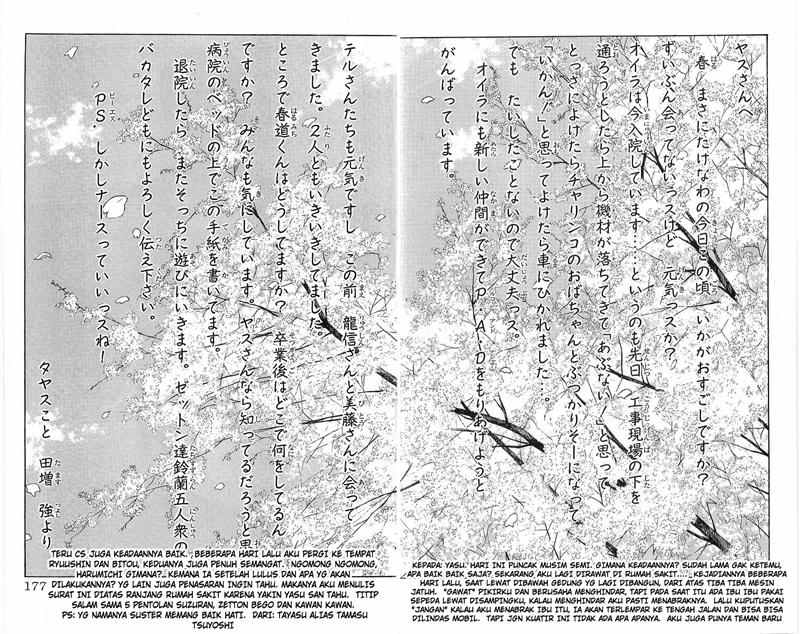 ヤスさんへ
春 まさにたけなわの今日この頃 いかがおすごしですか?
ずいぶん会ってないっスけど 元気っスか?
オイラは今入院しています……というのも先日 工事現場の下を
通ろうとしたら上から機材が落ちてきて「あぶない!」と思って
とっさによけたらチャリンコのおばちゃんとぶつかりそーになって、
「いかん!」と思ってよけたら車にひかれました…。
でも たいしたことないので大丈夫っス。
オイラにも新しい仲間ができてP・A・Dをもりあげようと
がんばっています。
テルさんたちも元気ですし この前 龍信さんと美藤さんに会って
きました。2人ともいきいきしてました。
ところで春道くんはどうしてますか? 卒業後はどこで何をしてるん
ですか? みんなも気にしています。ヤスさんなら知ってるだろうと思
病院のベッドの上でこの手紙を書いてます。
退院したら またそっちに遊びにいきます。ゼットン達鈴蘭五人衆の
バカタレどもにもよろしく伝え下さい。
PS. しかしナースっていいっスね!
タヤスこと 田増 強より
KEPADA: YASU. HARI INI PUNCAK MUSIM SEMI. GIMANA KEADAANNYA? SUDAH LAMA GAK KETEMU,
APA BAIK BAIK SAJA? SEKARANG AKU LAGI DIRAWAT DI RUMAH SAKIT..... KEJADIANNYA BEBERAPA
HARI LALU, SAAT LEWAT DIBAWAH GEDUNG YG LAGI DIBANGUN, DARI ATAS TIBA TIBA MESIN
JATUH. "GAWAT" PIKIRKU DAN BERUSAHA MENGHINDAR, TAPI PADA SAAT ITU ADA IBU IBU PAKAI
SEPEDA LEWAT DISAMPINGKU, KALAU MENGHINDAR AKU PASTI MENABRAKNYA. LALU KUPUTUSKAN
"JANGAN" KALAU AKU MENABRAK IBU ITU, IA AKAN TERLEMPAR KE TENGAH JALAN DAN BISA BISA
DILINDAS MOBIL. TAPI JGN KUATIR INI TIDAK ADA APA APANYA. AKU JUGA PUNYA TEMAN BARU
TERU CS JUGA KEADAANNYA BAIK. , BEBERAPA HARI LALU AKU PERGI KE TEMPAT
RYUUSHIN DAN BITOU, KEDUANYA JUGA PENUH SEMANGAT. NGOMONG NGOMONG,
HARUMICHI GIMANA? KEMANA IA SETELAH LULUS DAN APA YG AKAN
DILAKUKANNYA? YG LAIN JUGA PENASARAN INGIN TAHU. MAKANYA AKU MENULIS
SURAT INI DIATAS RANJANG RUMAH SAKIT KARENA YAKIN YASU SAN TAHU. TITIP
SALAM SAMA 5 PENTOLAN SUZURAN, ZETTON BEGO DAN KAWAN KAWAN.
PS: YG NAMANYA SUSTER MEMANG BAIK HATI. DARI: TAYASU ALIAS TAMASU
TSUYOSHI
177